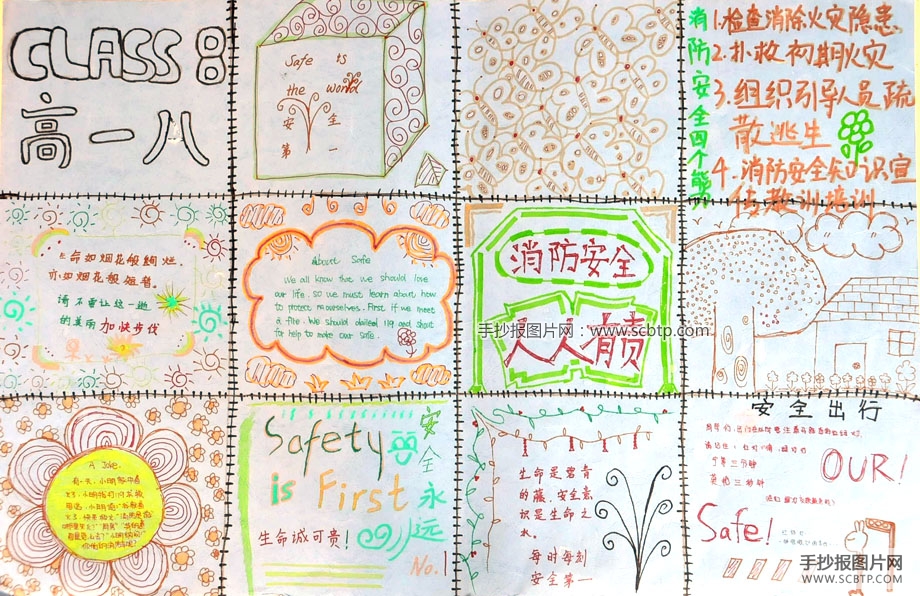 CLASS 8
高一八
Safe is
the world
安全
第一
消防安全四个能
1.检查消除火灾隐患
2.扑救初期火灾
3.组织引导人员疏
散逃生
4.消防安全知识宣
传教训培训
生命如烟花般绚烂,
亦如烟花般短暂。
请不要让这一逝
的美丽加快步伐
About Safe
We all know that we should love
our life. so we must learn about how
to protect ourselves. First if we meet
a fire. We should dialled 119 and shout
for help to make our safe.
消防安全
人人有责
手抄报图片网:www.scbtp.com
A Joke.
有一天,小明
Safety
is First
生命诚可贵!
安全永远
No.1
生命是碧青
的藤,安全意
识是生命之
水。
每时每刻
安全第一
安全出行
宁等三分钟
莫抢三秒钟
OUR!
Safe!
手抄报图片网
WWW.SCBTP.COM